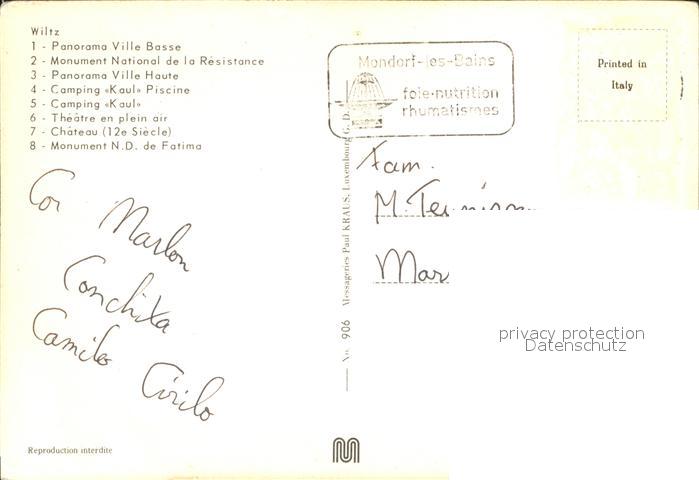 Wiltz
1 - Panorama Ville Basse
2 - Monument National de la Résistance
3 - Panorama Ville Haute
4 - Camping «Kaul» Piscine
5 - Camping «Kaul»
6 - Théâtre en plein air
7 - Château (12e Siècle)
8 - Monument N.D. de Fatima
Mondorf-les-Bains
foie-nutrition
rhumatismes
Printed in
Italy
Cor Marlon
Conchita
Camilo Cirilo
No. 906 Messageries Paul KRAUS, Luxembourg G. D.
Fam.
M.
Mar
privacy protection
Datenschutz
Reproduction interdite